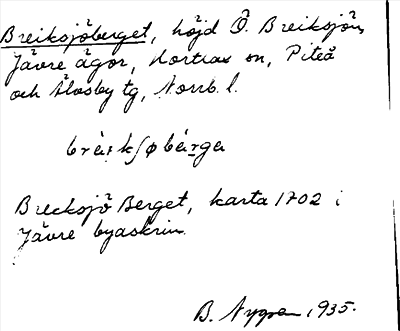 Breiksjöberget, höjd Ö. Breiksjön,
Jävre ägor, Hortlax sn, Piteå
och Älvsby tg, Norrb. l.
bràiksjøbärga
Brecksjö Berget, karta 1702 i
Jävre byaskrin
B. Nygren 1935.